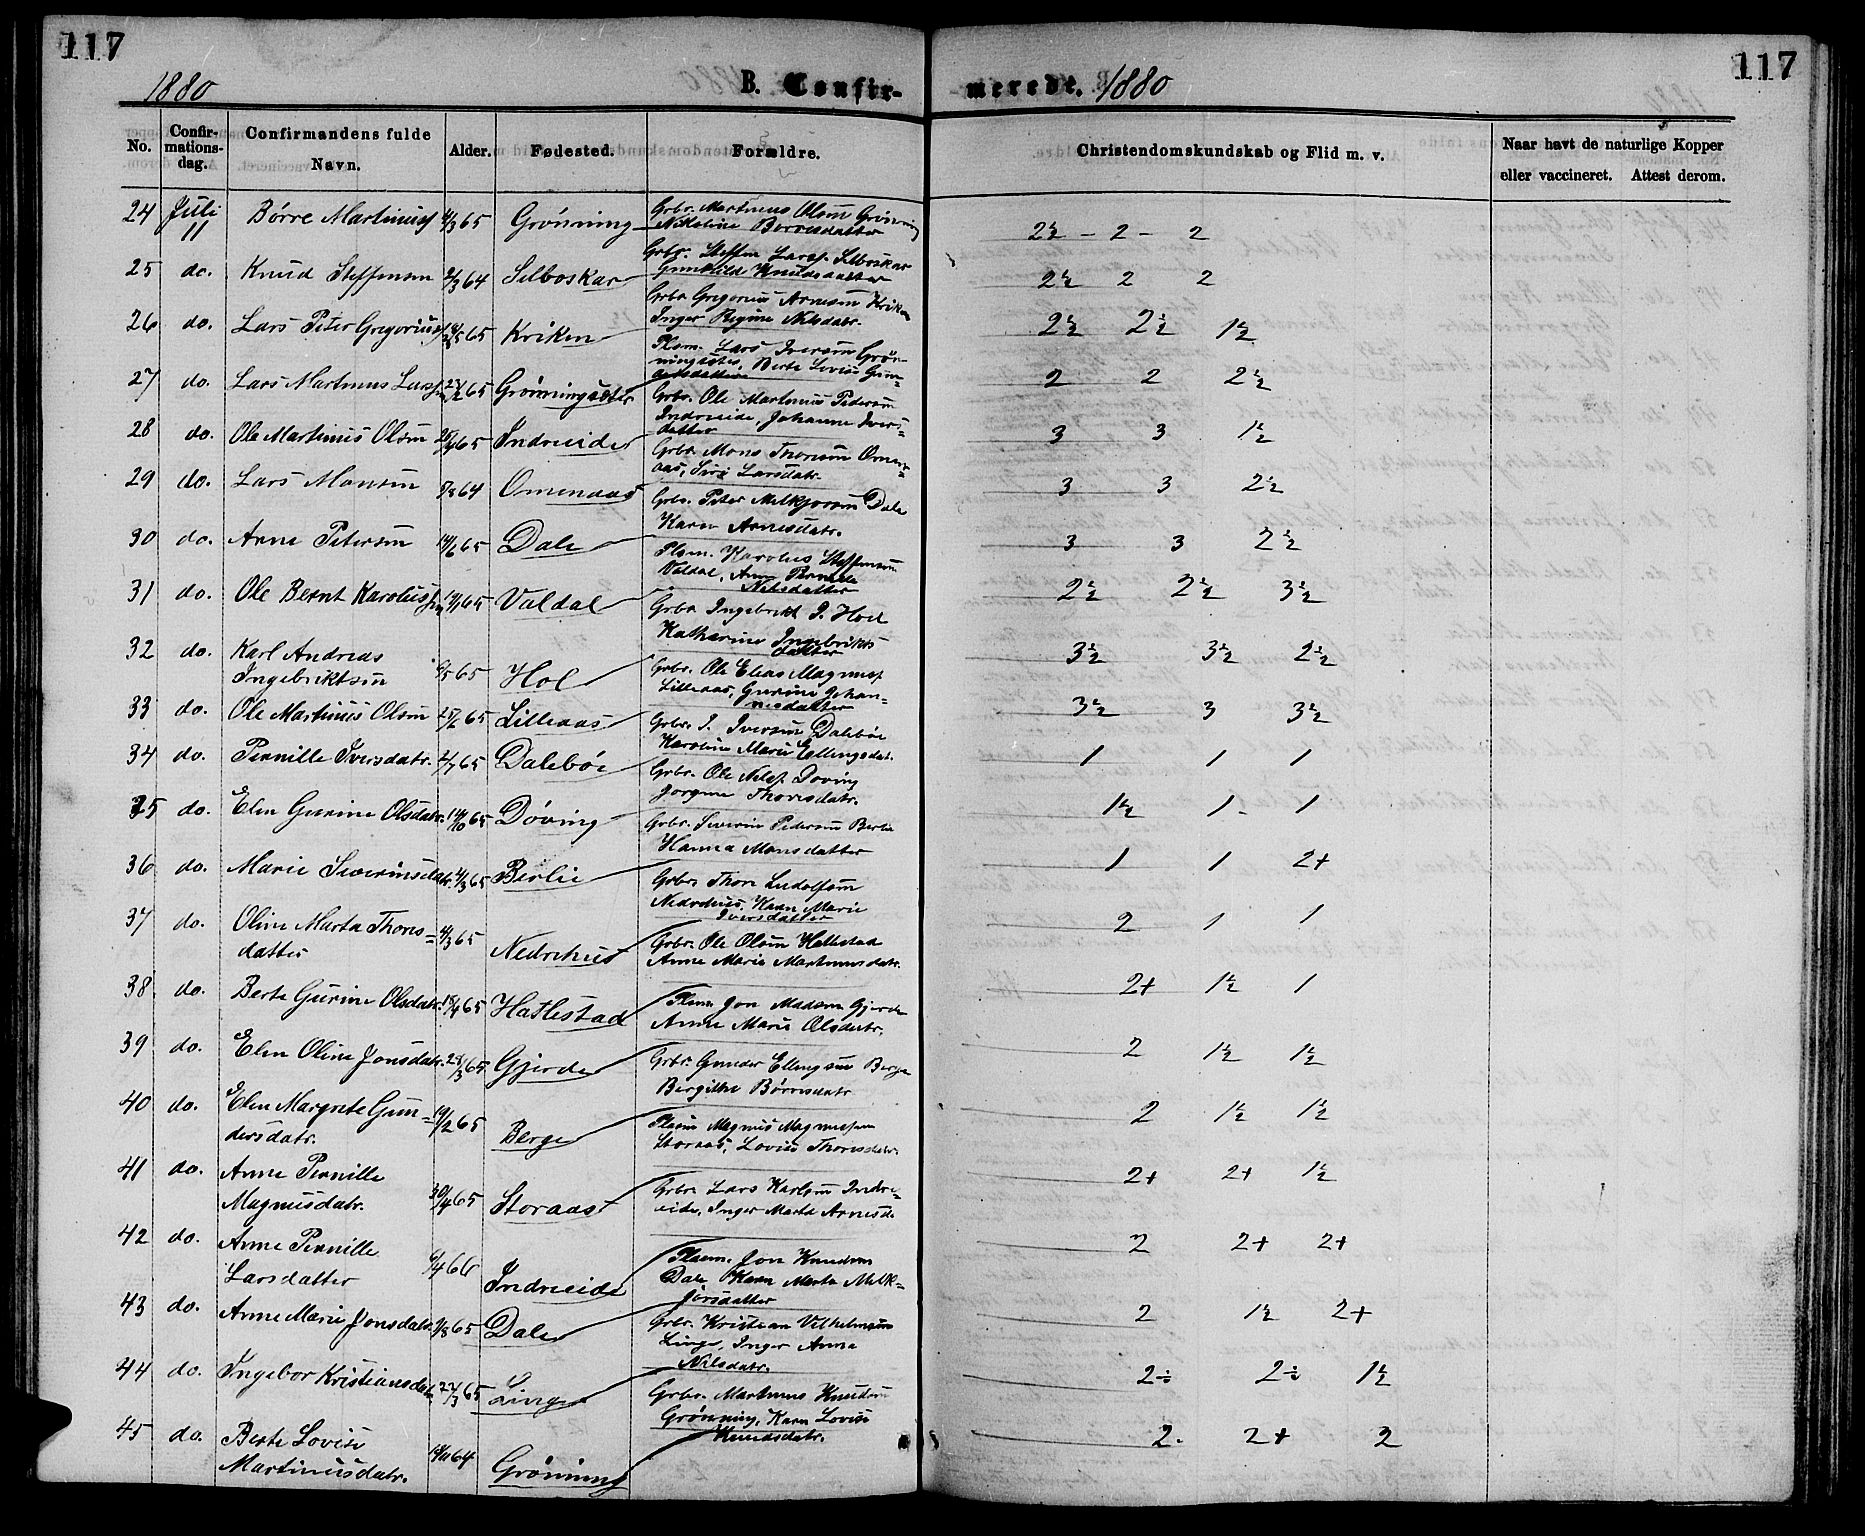 117
117
1880
B. Confir-
merede. 1880
No.
Confir-
mations-
dag.
Confirmandens fulde
Navn.
Alder.
Fødested.
Forældre.
Christendomskundskab og Flid m. v.
Naar havt de naturlige Kopper
eller vaccineret. Attest derom.
24 Juli 11 Børre Martinus 65 Grønning
Grbr. Martinus Olsen Grønning
Nikoline Børresdatter
2½ - 2 - 2
25 do. Knud Steffensen 64 Selboskar
Grbr. Steffen Larss. Selboskar
Gunhild Knudsdatter
2½ 2 2
26 do. Lars Peter Gregorius 65 Kriken
Grbr Gregorius Arnesen Kriken
Inger Regine Nilsdatr.
2½ 2½ 1½
27 do. Lars Martinus Larss. 65 Grønningsæter
Plsm. Lars Iversen Grøn-
ningsæter, Berte Lovise Gun-
dersdatter
2 2 2½
28 do. Ole Martinus Olsen 65 Indreeide
Grbr. Ole Martinus Pedersen
Indreeide, Johanne Ivers-
datter
3 3 1½
29 do. Lars Monsen 5/8 64 Omenaas
Grbr. Mons Thoresen Omen-
aas, Siri Larsdatr.
3 3 2½
30 do. Arne Petersen 14/6 65 Dale
Grbr. Peter Melkjorsen Dale
Karen Arnesdatr.
3 3 2½
31 do. Ole Bernt Karolus 65 Valdal
Plsm. Karolus Steffensen
Valdal, Anne Pernille
Nilsdatter
2½ 2½ 3½
32 do. Karl Andreas
Ingebriktsen 65 Hol
Grbr Ingebrikt P. Hol
Katharine Ingebrikts
datter
3½ 3½ 2½
33 do. Ole Martinus Olsen 25/2 65 Lilleaas
Grbr. Ole Elias Magnuss.
Lilleaas, Gurine Johan-
nesdatter
3½ 3 3½
34 do. Pernille Iversdatr. 2/7 65 Dalebøe
Grbr. I. Iversen Dalebøe
Karoline Marie Ellingsdat.
1 1 1
35 do. Elen Gurine Olsdatr. 14/10 65 Døving
Grbr. Ole Nilss. Døving
Jørgine Thoresdatr.
1½ 1 - 1
36 do. Marie Severinsdatr. 4/3 65 Berlie
Grbr. Severin Pedersen Berlie
Hanna Monsdatter
1 1 2+
37 do. Oline Marta Thores-
datter 4/3 65 Nedrehus
Grbr. Thore Ludolfsen
Nedrehus, Karen Marie
Iversdatter
2 1 1
38 do. Berte Gurine Olsdatr. 18/4 65 Hatlestad
Grbr. Ole Olsen Hatlestad
Anne Marie Martinusdatr.
2+ 1½ 1
39 do. Elen Oline Jonsdatr. 28/3 65 Gjerde
Plsm. Jon Madsen Gjerde
Anne Marie Olsdatr.
2 1½ 1½
40 do. Elen Margrete Gun-
dersdatr. 19/2 65 Berge
Grbr. Gunder Ellingsen Berge
Bergithe Børresdatr
2 1½ 1½
41 do. Anne Pernille
Magnusdatr. 30/4 65 Storaas
Plsm Magnus Magnussen
Storaas, Lovise Thoresdatr.
2+ 2+ 1½
42 do. Anne Pernille
Larsdatter 6/4 66 Indreeide
Grbr. Lars Karlsen Indre-
eide, Inger Marta Arnesd.
2 2+ 2+
43 do. Anne Marie Jonsdatr. 65 Dale
Plsm. Jon Knudsen
Dale, Karen Marta Melk-
jorsdatter
2 1½ 2+
44 do. Ingebor Kristiansdatr. 27/3 65 Linge
Grbr. Kristian Vilhelmsen
Linge, Inger Anna
Nilsdatr.
2÷ 2÷ 1½
45 do. Berte Lovise
Martinusdatr. 64 Grønning
Grbr. Martinus Knudsen
Grønning, Karen Lovise
Knudsdatr.
2. 2+ 2